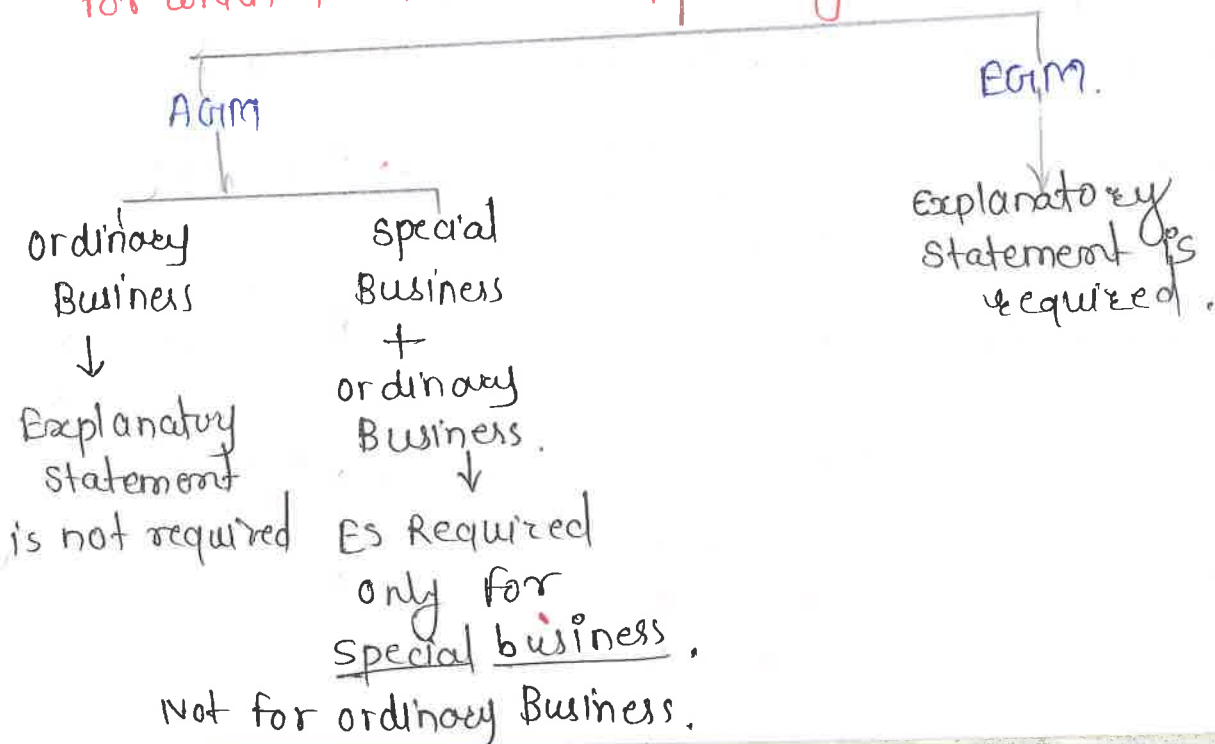 for
AGM
EGM.
ordinary
Business
↓
Explanatory
Statement
is not required
special
Business
+
ordinary
Business.
↓
ES Required
only for
special business.
Not for ordinary Business.
Explanatory
Statement is
required.